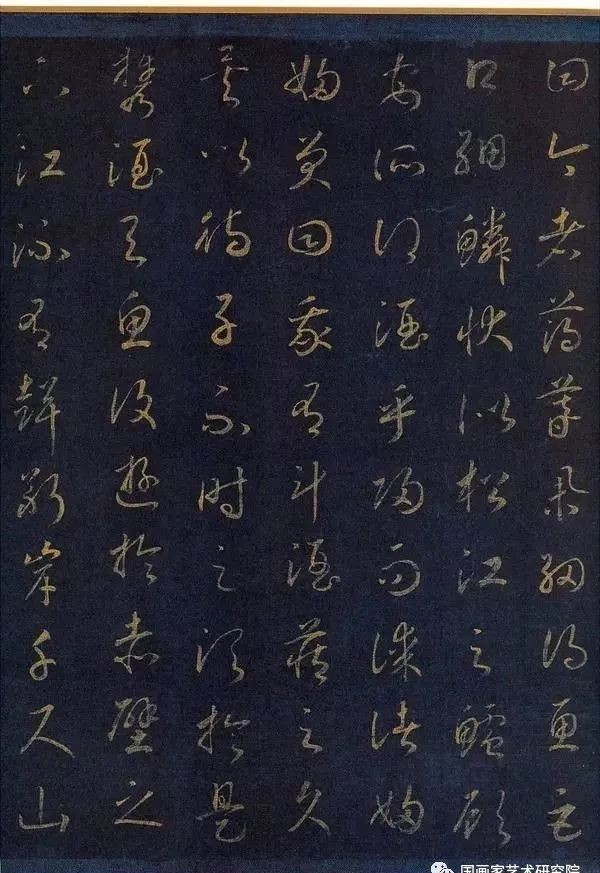 曰今者薄暮舉網得魚巨
口細鱗狀似松江之鱸顧
安所得酒乎歸而謀諸婦
婦笑曰我有斗酒藏之久
矣以待子不時之須於是
攜酒與魚復遊於赤壁之
下江流有聲斷岸千尺山
国画家艺术研究院